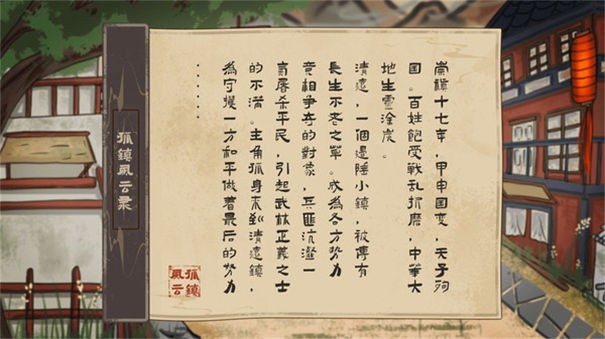 崇禎十七年，甲申国变，天子殉
国。百姓飽受戰乱折磨，中華大
地生靈塗炭。
清遠，一個邊陲小鎮，被傳有
長生不老之草。成為各方势力
竞相争夺的對象，兵匪沆瀣一
氣屠杀平民，引起武林正義之士
的不满。主角孤身来到清遠鎮，
為守護一方和平做着最后的努力
......
孤鎮風云录
孤鎮
風云